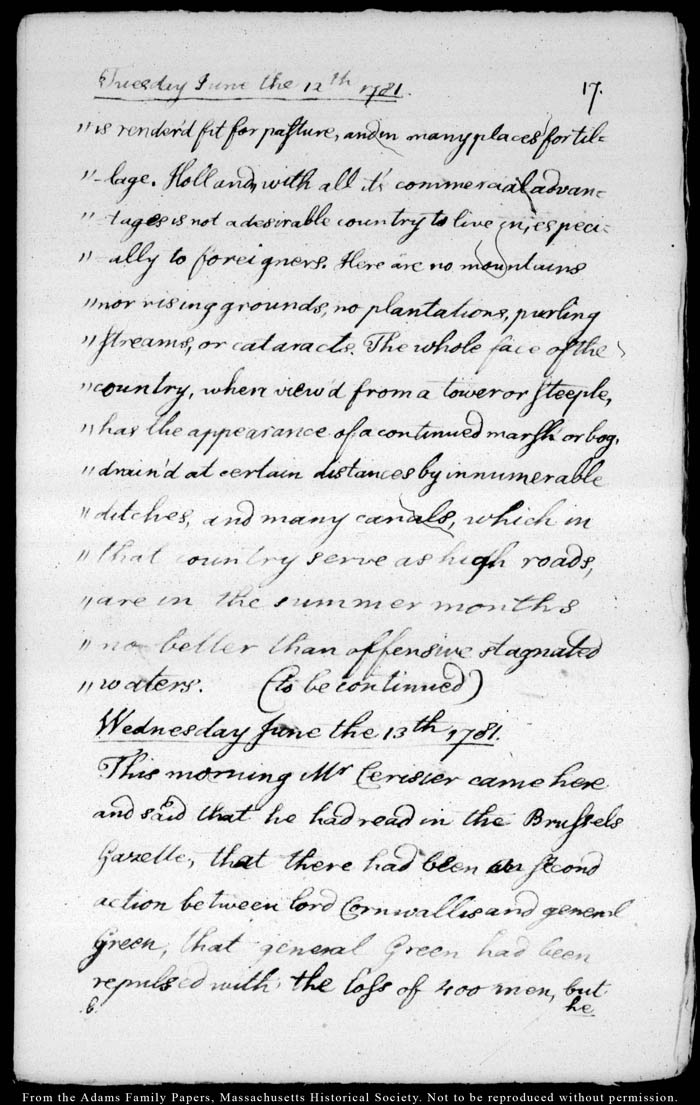 Tuesday June the 12th 1781. 17.
"is render'd fit for pasture, and in many places for til=
"-lage. Holland, with all it's commercial advan=
"-tages is not a desirable country to live in, especi-
"-ally to foreigners. Here are no mountains
"nor rising grounds, no plantations, purling
"streams, or cataracts. The whole face of the
"country, when view'd from a tower or steeple,
"has the appearance of a continued marsh or bog,
"drain'd at certain distances by innumerable
"ditches, and many canals, which in
"that country serve as high roads,
"are in the summer months
"no better than offensive stagnated
"waters. (to be continued)
Wednesday June the 13th 1781.
This morning Mr Cerisier came here
and said that he had read in the Brussels
Gazette, that there had been a second
action between lord Cornwallis and general
Green, that general Green had been
repulsed with the loss of 400 men, but
6. he
From the Adams Family Papers, Massachusetts Historical Society. Not to be reproduced without permission.